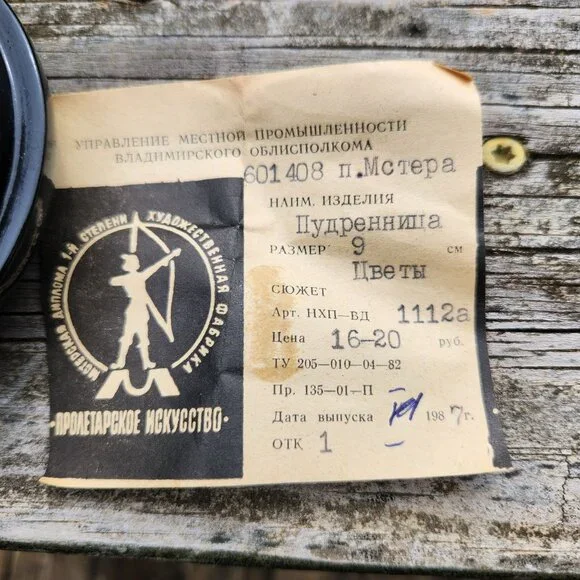 УПРАВЛЕНИЕ МЕСТНОЙ ПРОМЫШЛЕННОСТИ
ВЛАДИМИРСКОГО ОБЛИСПОЛКОМА
601408 п.Мстера
НАИМ. ИЗДЕЛИЯ
Пудренница
РАЗМЕР 9 см
Цветы
СЮЖЕТ
Арт. НХП—ВД 1112а
Цена 16-20 руб.
ТУ 205—010—04—82
Пр. 135—01—П
Дата выпуска 1987г.
ОТК 1
ДИПЛОМА 1-Й СТЕПЕНИ ХУДОЖЕСТВЕННАЯ ФАБРИКА
·ПРОЛЕТАРСКОЕ ИСКУССТВО·